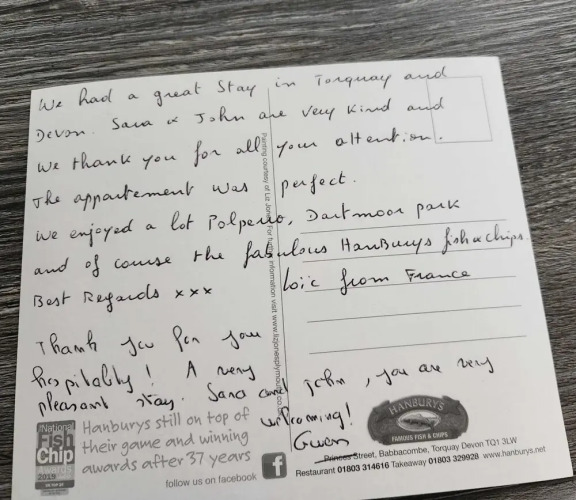 We had a great stay in Torquay and
Devon. Sara & John are very kind and
we thank you for all your attention.
The appartement was perfect.
We enjoyed a lot Polperro, Dartmoor park
and of course the fabulous Hanburys fish & chips.
Best Regards xxx Loïc from France
Thank you for your
hospitality! A very
pleasant stay. Sara and John, you are very
welcoming!
Gwen
Painting courtesy of Liz Jones. For further information visit www.lizjonesplymouth.co.uk
National
Fish &
Chip
Awards
2019
Hanburys still on top of
their game and winning
awards after 37 years
follow us on facebook
f
HANBURYS
FAMOUS FISH & CHIPS
Princes Street, Babbacombe, Torquay Devon TQ1 3LW
Restaurant 01803 314616 Takeaway 01803 329928 www.hanburys.net